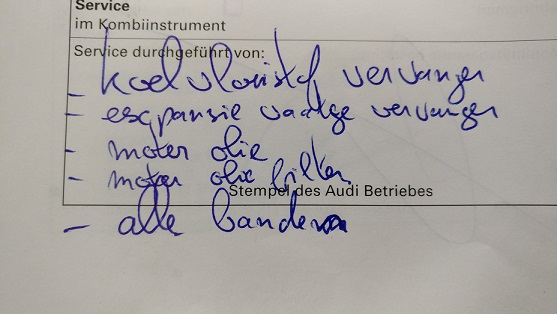 Service
im Kombiinstrument
Service durchgeführt von:
- koelvloeistof vervangen
- escpansie vaatge vervangen
- moter olie
- moter olie filter
Stempel des Audi Betriebes
- alle banden